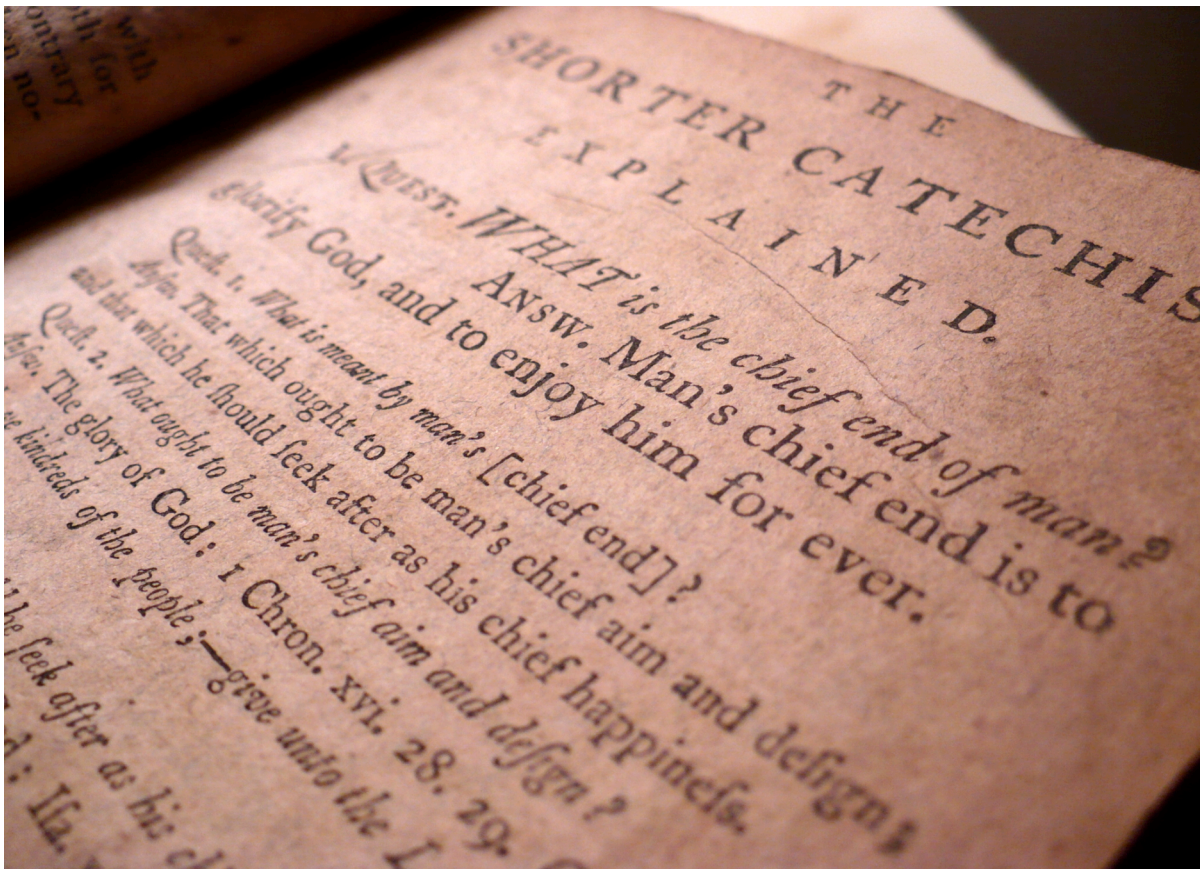 with
oth for
ontrary
n no-
THE
SHORTER CATECHIS
EXPLAINED.
1. QUEST. WHAT is the chief end of man?
ANSW. Man's chief end is to
glorify God, and to enjoy him for ever.
Queſt. 1. What is meant by man's [chief end]?
Anſw. That which ought to be man's chief aim and deſign;
and that which he ſhould ſeek after as his chief happineſs.
Queſt. 2. What ought to be man's chief aim and deſign?
Anſw. The glory of God: 1 Chron. xvi. 28. 29.
kindreds of the people;—give unto the L
he ſeek after as his ch
d: Iſa.